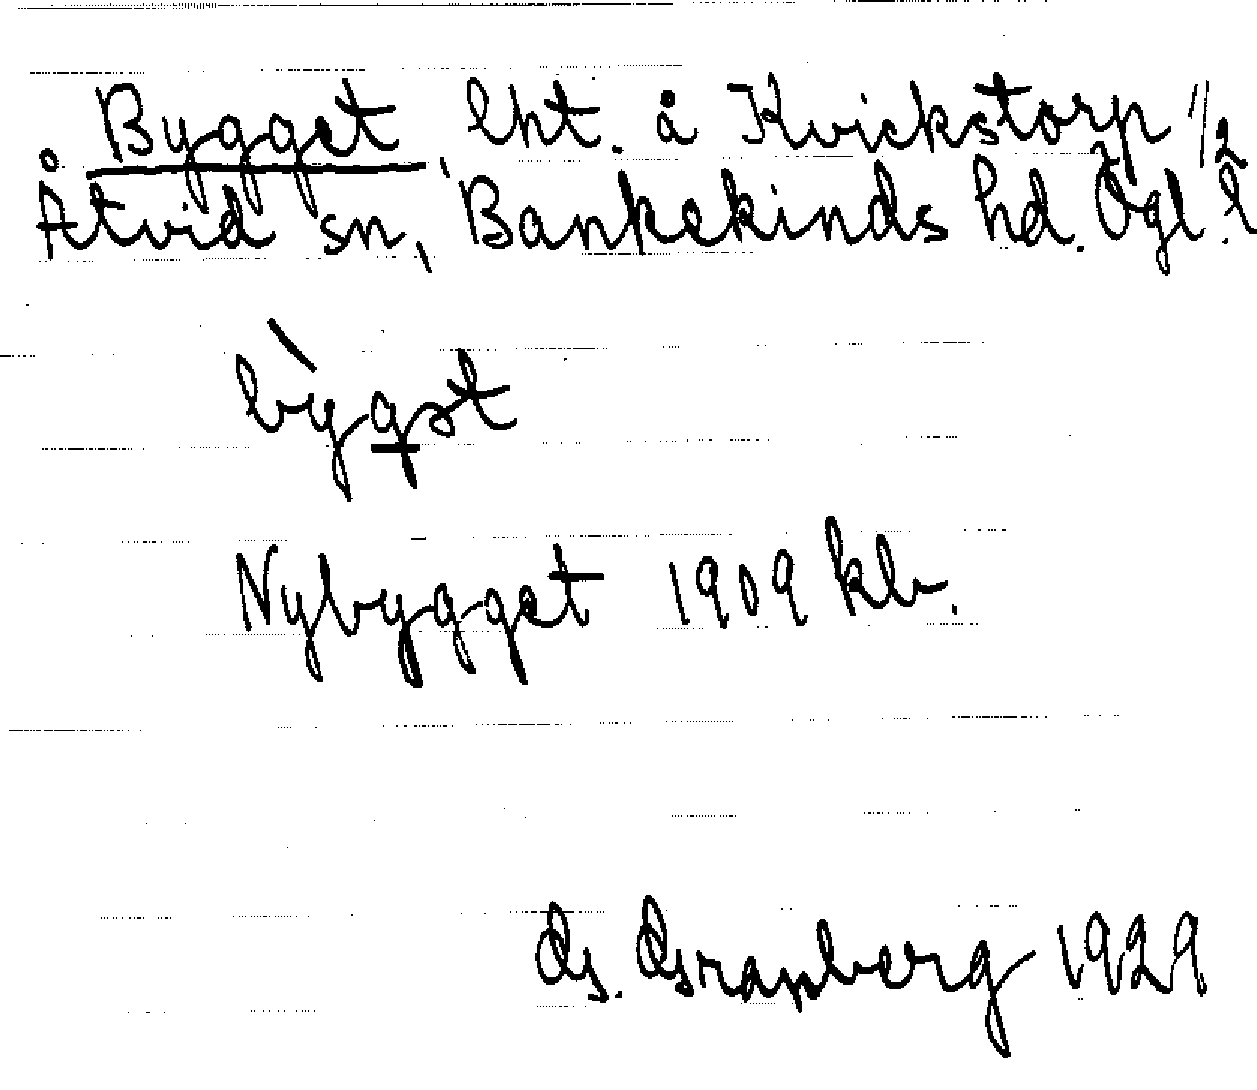 Bygget, lht. å Kvickstorp 1/2
Åtvid sn, Bankekinds hd. Ögl. l
bỳgət
Nybygget 1909 kb.
G. Granberg 1929